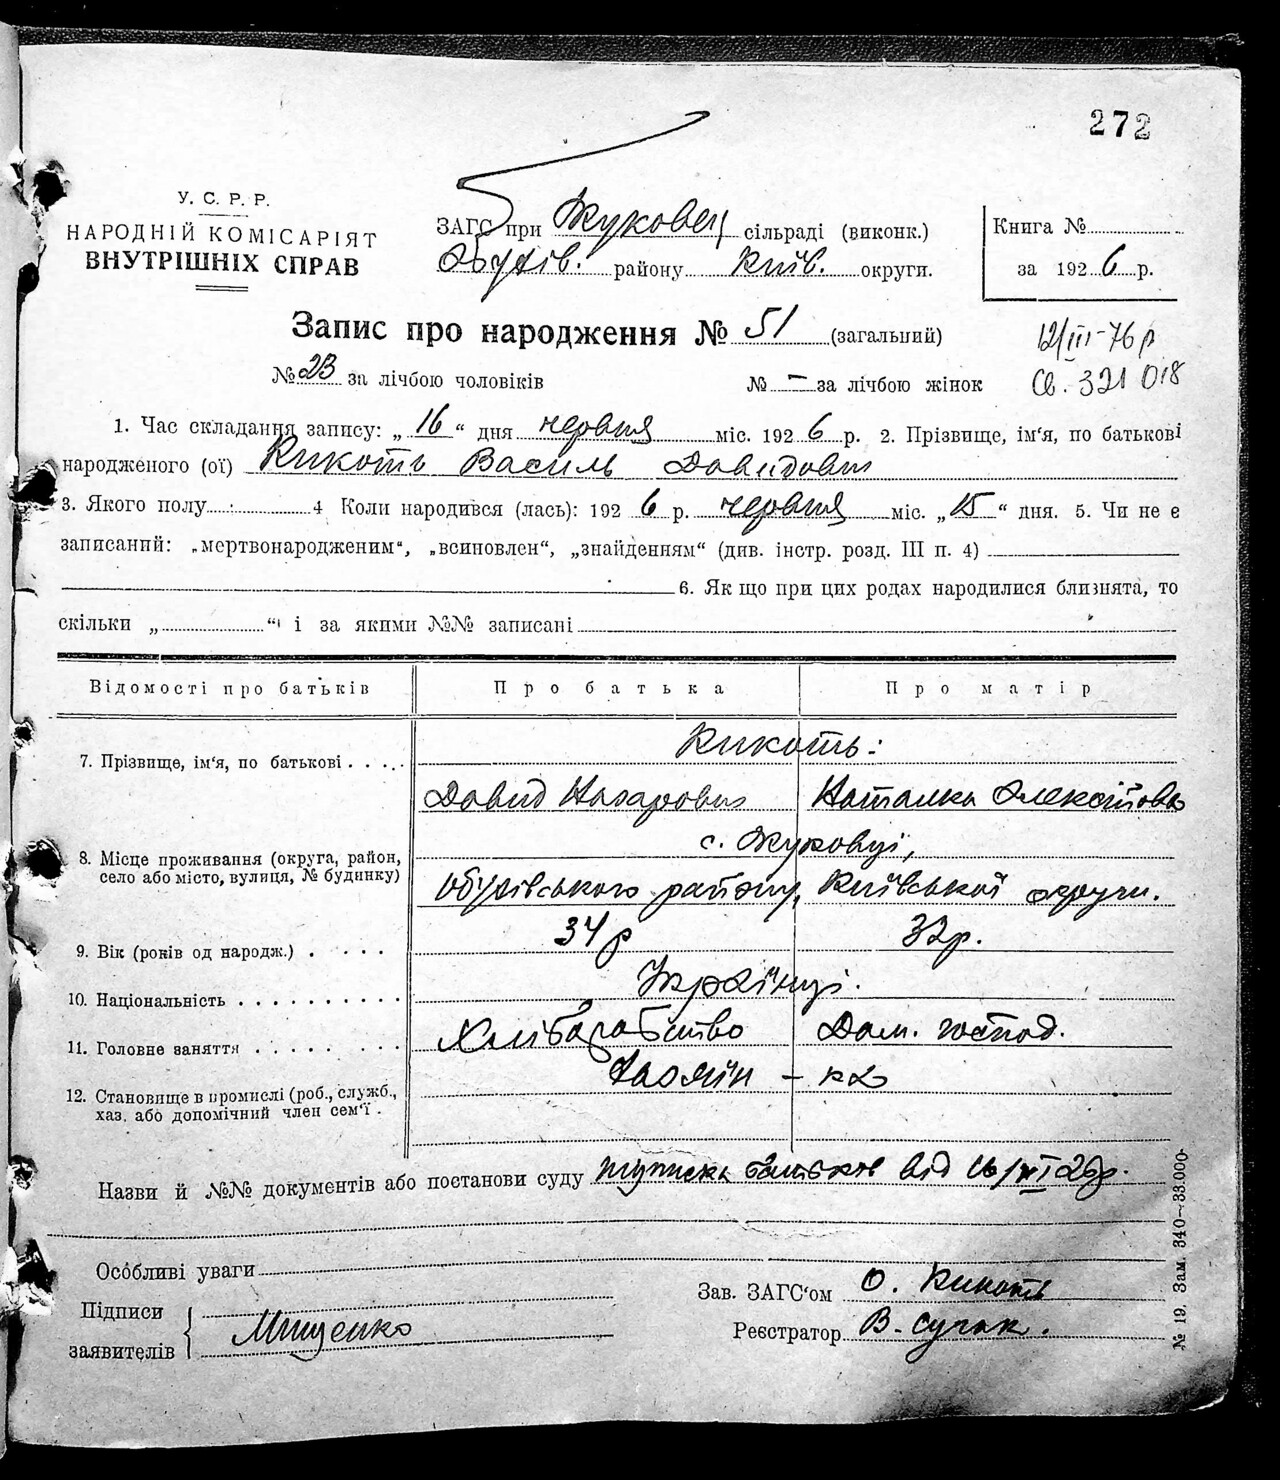 272
У. С. Р. Р.
НАРОДНІЙ КОМІСАРІЯТ
ВНУТРІШНІХ СПРАВ
ЗАГС при Жуковец. сільраді (виконк.)
Обухів. району Київ. округи.
Книга №
за 1926 р.
Запис про народження № 51 (загальний)
12/III-76 р
Св. 321 018
№ 23 за лічбою чоловіків № — за лічбою жінок
1. Час складання запису: „16“ дня червня міс. 1926 р. 2. Прізвище, ім'я, по батькові
народженого (ої) Кикоть Василь Давидович
3. Якого полу 4 Коли народився (лась): 1926 р. червня міс. „15“ дня. 5. Чи не є
записаний: „мертвонародженим“, „всиновлен“, „знайденям“ (див. інстр. розд. III п. 4)
6. Як що при цих родах народилися близнята, то
скільки „ “ і за якими №№ записані
Відомості про батьків Про батька Про матір
7. Прізвище, ім'я, по батькові Кикоть:
Давид Назарович Наталка Олексіївна
8. Місце проживання (округа, район,
село або місто, вулиця, № будинку)
с. Жуковці,
Обухівського району, Київської округи.
9. Вік (років од народж.) 34 р 32 р.
10. Національність Українці.
11. Головне заняття Хліборобство Дом. господ.
12. Становище в промислі (роб., служб.,
хаз. або допомічний член сем'ї.
Хазяїн – ка
Назви й №№ документів або постанови суду батьків від 16/VI 26р.
Особливі уваги
Підписи
заявителів
Мищенко
Зав. ЗАГС'ом О. Кикоть
Реєстратор В.
№ 19. Зам. 340—33.000